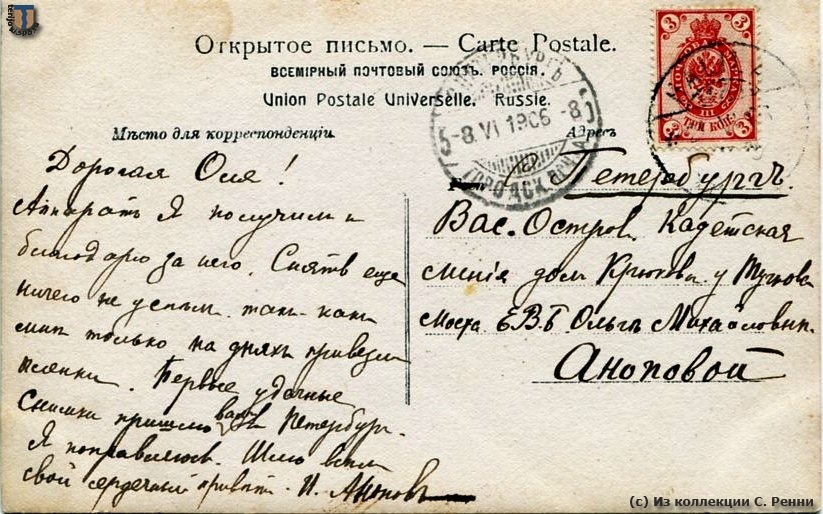 Открытое письмо. — Carte Postale.
ВСЕМІРНЫЙ ПОЧТОВЫЙ СОЮЗЪ. РОССІЯ.
Union Postale Universelle. Russie.
Мѣсто для корреспонденціи
Адресъ
3 3
3 3
ТРИ КОП.
5-8.VI 1906-8
ГОРОДСКАЯ
Дорогая Оля!
Аппаратъ Я получилъ и
благодарю за него. Снять еще
ничего не успѣлъ такъ какъ
мнѣ только на дняхъ привезли
пленки. Первые удачные
снимки пришлю вамъ въ Петербургъ.
Я поправляюсь. Шлю всѣмъ
свой сердечный привѣтъ. Аноповъ
Петербургъ.
Вас. Остров. Кадетская
линія дом Крюкова у Тучкова
моста Е.В.Б. Ольгѣ Михайловнѣ
Аноповой
(с) Из коллекции С. Ренни